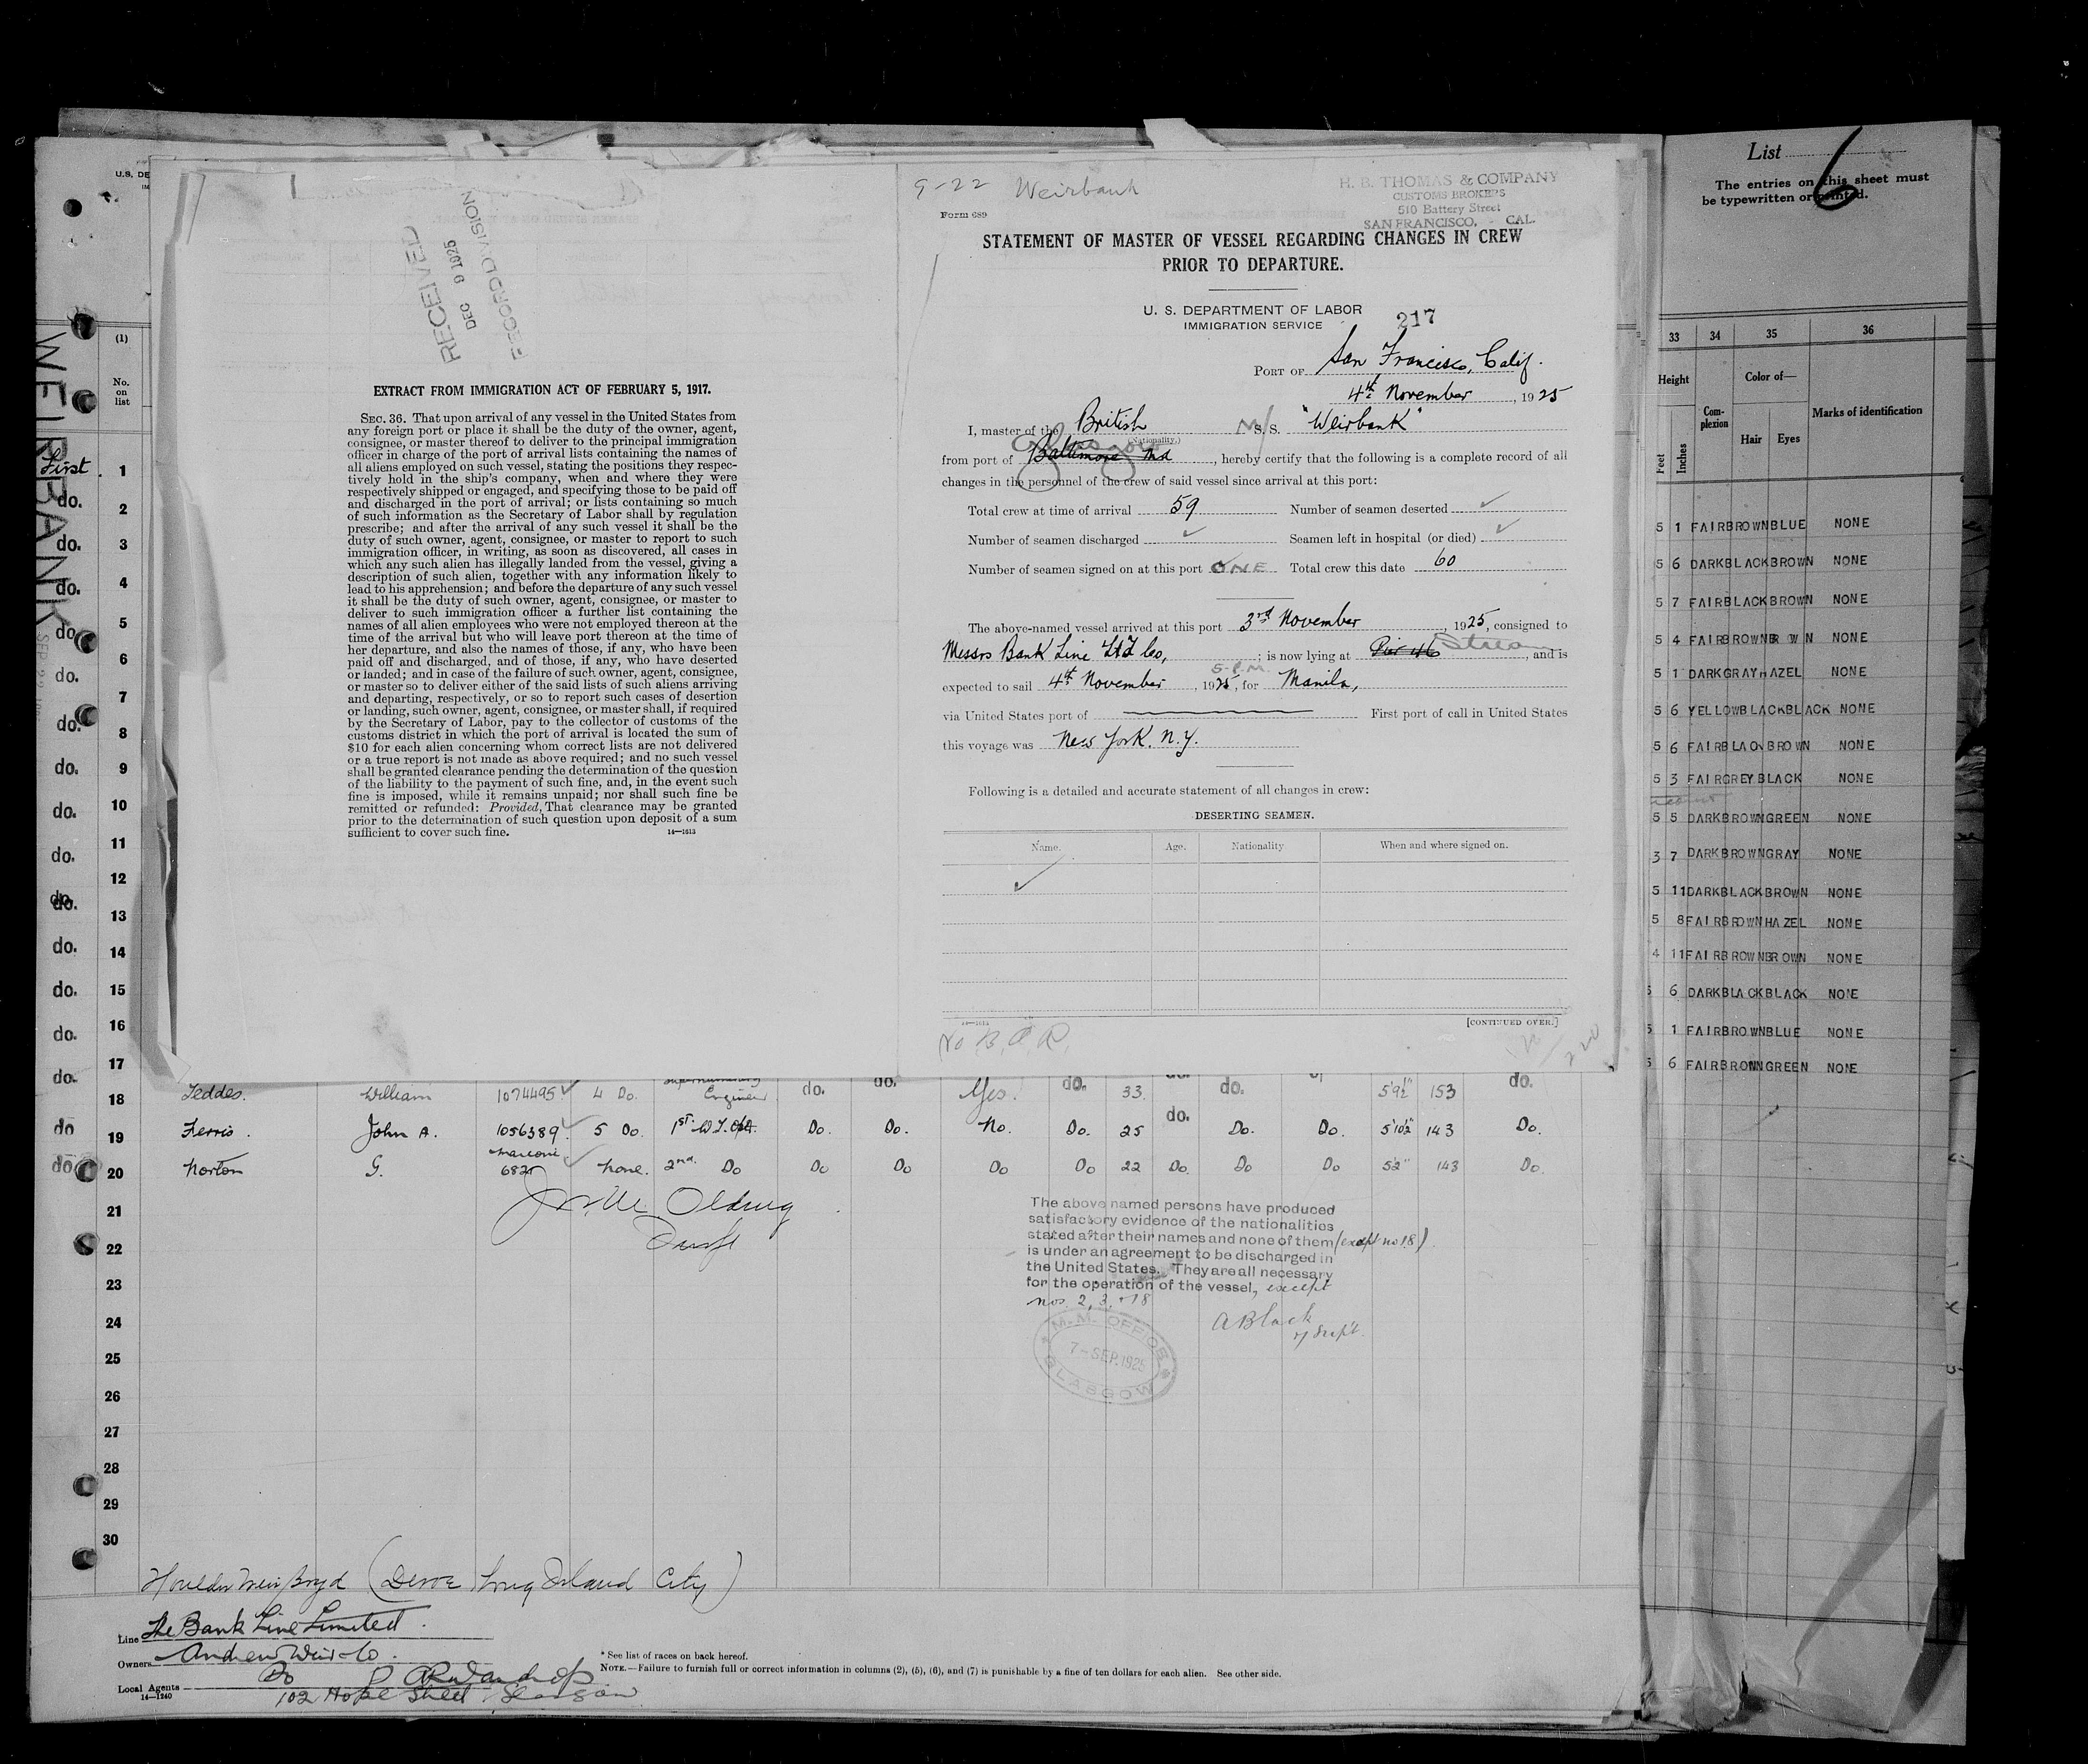 U.S. DE
(1)
No.
on
list
WEIRBANK
First
do.
1
2
3
4
5
6
7
8
9
10
11
12
13
14
15
16
17
RECEIVED
DEC 9 1925
RECORD DIVISION
EXTRACT FROM IMMIGRATION ACT OF FEBRUARY 5, 1917.
SEC. 36. That upon arrival of any vessel in the United States from
any foreign port or place it shall be the duty of the owner, agent,
consignee, or master thereof to deliver to the principal immigration
officer in charge of the port of arrival lists containing the names of
all aliens employed on such vessel, stating the positions they respec-
tively hold in the ship's company, when and where they were
respectively shipped or engaged, and specifying those to be paid off
and discharged in the port of arrival; or lists containing so much
of such information as the Secretary of Labor shall by regulation
prescribe; and after the arrival of any such vessel it shall be the
duty of such owner, agent, consignee, or master to report to such
immigration officer, in writing, as soon as discovered, all cases in
which any such alien has illegally landed from the vessel, giving a
description of such alien, together with any information likely to
lead to his apprehension; and before the departure of any such vessel
it shall be the duty of such owner, agent, consignee, or master to
deliver to such immigration officer a further list containing the
names of all alien employees who were not employed thereon at the
time of the arrival but who will leave port thereon at the time of
her departure, and also the names of those, if any, who have been
paid off and discharged, and of those, if any, who have deserted
or landed; and in case of the failure of such owner, agent, consignee,
or master so to deliver either of the said lists of such aliens arriving
and departing, respectively, or so to report such cases of desertion
or landing, such owner, agent, consignee, or master shall, if required
by the Secretary of Labor, pay to the collector of customs of the
customs district in which the port of arrival is located the sum of
$10 for each alien concerning whom correct lists are not delivered
or a true report is not made as above required; and no such vessel
shall be granted clearance pending the determination of the question
of the liability to the payment of such fine, and, in the event such
fine is imposed, while it remains unpaid; nor shall such fine be
remitted or refunded: Provided, That clearance may be granted
prior to the determination of such question upon deposit of a sum
sufficient to cover such fine. 14—1613
9-22 Weirbank
H. B. THOMAS & COMPANY
CUSTOMS BROKERS
510 Battery Street
SAN FRANCISCO, - CAL.
Form 689
STATEMENT OF MASTER OF VESSEL REGARDING CHANGES IN CREW
PRIOR TO DEPARTURE.
U. S. DEPARTMENT OF LABOR
IMMIGRATION SERVICE
217
PORT OF San Francisco, Calif.
4th November, 1925
I, master of the British M/S. S. "Weirbank"
(Nationality.)
from port of Baltimore Md Glasgow, hereby certify that the following is a complete record of all
changes in the personnel of the crew of said vessel since arrival at this port:
Total crew at time of arrival 59 Number of seamen deserted ✓
Number of seamen discharged ✓ Seamen left in hospital (or died) ✓
Number of seamen signed on at this port ONE Total crew this date 60
The above-named vessel arrived at this port 3rd November, 1925, consigned to
Messrs Bank Line Ltd Co,; is now lying at Pier 46 Stream, and is
5 P.M.
expected to sail 4th November, 1925, for Manila,
via United States port of First port of call in United States
this voyage was New York. N.Y.
Following is a detailed and accurate statement of all changes in crew:
DESERTING SEAMEN.
Name. Age. Nationality When and where signed on.
✓
14—1613
[CONTINUED OVER.]
No B.O.R.
List 6
The entries on this sheet must
be typewritten or printed.
33 34 35 36
Height Com-plexion Color of— Marks of identification
Feet Inches Hair Eyes
5 1 FAIR BROWN BLUE NONE
5 6 DARK BLACK BROWN NONE
5 7 FAIR BLACK BROWN NONE
5 4 FAIR BROWN BR W N NONE
5 1 DARK GRAY HAZEL NONE
5 6 YELLOW BLACK BLACK NONE
5 6 FAIR BLACK BROWN NONE
5 3 FAIR GREY BLACK NONE
5 5 DARK BROWN GREEN NONE
3 7 DARK BROWN GRAY NONE
5 11 DARK BLACK BROWN NONE
5 8 FAIR BROWN HAZEL NONE
4 11 FAIR BROWN BROWN NONE
5 6 DARK BLACK BLACK NONE
5 1 FAIR BROWN BLUE NONE
5 6 FAIR BROWN GREEN NONE
18 William 1074495 4 Do. Engineer do. do. Yes. do. 33. do. do. 5'9½" 153 do.
do 19 Ferris. John A. 1056389 5 Do 1st W.T. Opr. Do. Do. No. Do. 25 do. Do. Do. 5'10½" 143 Do.
do 20 Norton G. Marconi 682 None. 2nd. Do Do Do Do Do 22 Do. Do Do 5'2" 143 Do.
21
22
23
24
25
26
27
28
29
30
The above named persons have produced
satisfactory evidence of the nationalities
stated after their names and none of them (except no 18)
is under an agreement to be discharged in
the United States. They are all necessary
for the operation of the vessel, except
nos. 2, 3, + 18
A Black
M.M. OFFICE
7-SEP.1925
GLASGOW
Houlder Weir Boyd (Devoe Long Island City)
Line The Bank Line Limited.
Owners Andrew Weir & Co.
Local Agents Do
14—1240
102 Hope Street Glasgow
* See list of races on back hereof.
NOTE.—Failure to furnish full or correct information in columns (2), (5), (6), and (7) is punishable by a fine of ten dollars for each alien. See other side.